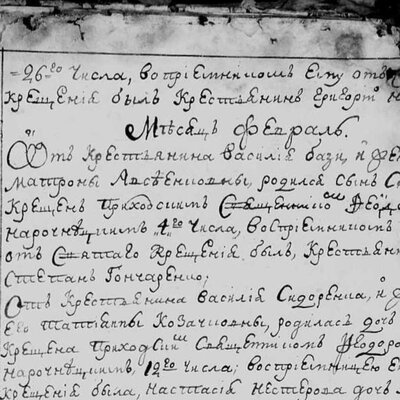 26го числа, воспріемникомъ ему отъ
крещенія былъ крестьянинъ григорій
Мѣсяцъ Февраль.
Отъ крестьянина василія бази, и
матроны Авсѣенковны, родился сынъ
крещенъ приходскимъ священникомъ Ѳедо
нарочнѣцкимъ 4го числа, воспріемникомъ
отъ Святаго крещенія былъ, крестьян
стефанъ Гончаренко;
Отъ крестьянина василія Сидоренка, и
Его татіаны козачковны, родилась дочь
крещена приходским священником Ѳеодоро
нарочнѣцкимъ, 12го числа; воспріемницею
крещенія была, настасія нестерова дочь